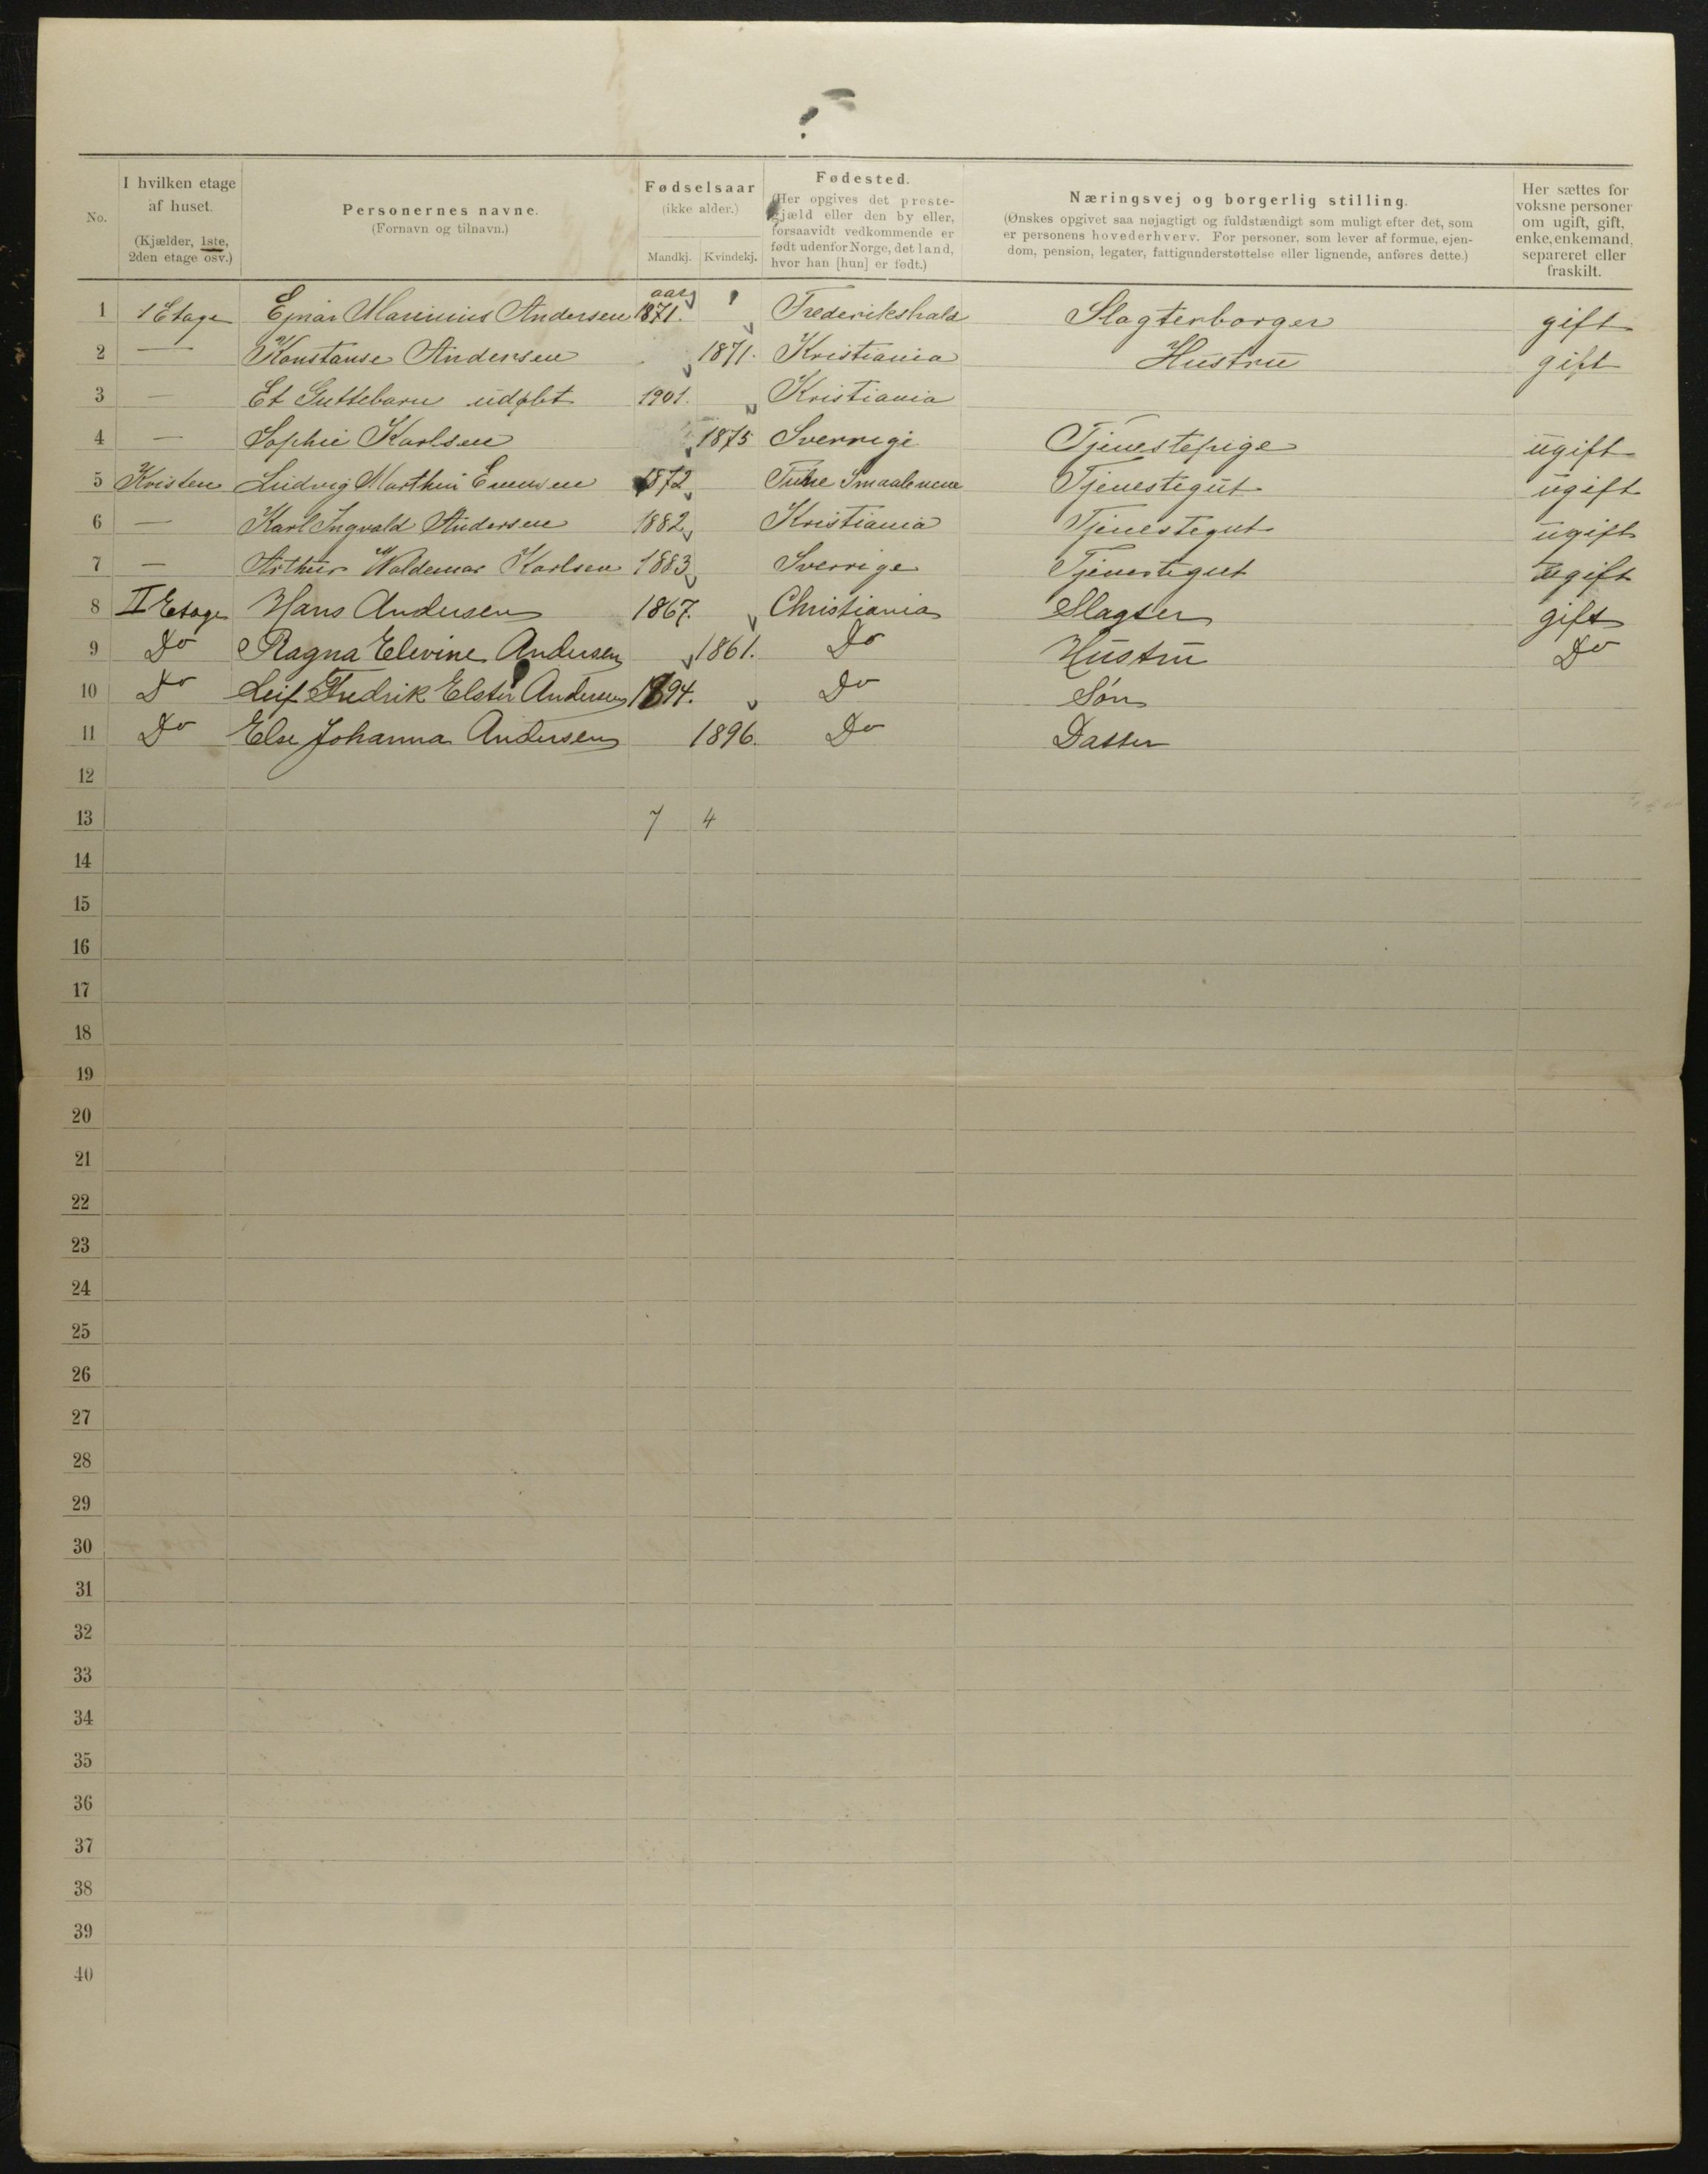 No.
I hvilken etage af huset. (Kjælder, 1ste, 2den etage osv.)
Personernes navne. (Fornavn og tilnavn.)
Fødselsaar (ikke alder.) Mandkj. Kvindekj.
Fødested. (Her opgives det prestegjæld eller den by eller, forsaavidt vedkommende er født udenfor Norge, det land, hvor han [hun] er født.)
Næringsvej og borgerlig stilling. (Ønskes opgivet saa nøjagtigt og fuldstændigt som muligt efter det, som er personens hovederhverv. For personer, som lever af formue, ejendom, pension, legater, fattigunderstøttelse eller lignende, anføres dette.)
Her sættes for voksne personer om ugift, gift, enke, enkemand, separeret eller fraskilt.
aar
1 1 Etage Ejnar Marinius Andersen 1871. Frederikshald Slagterborger gift
2 — Konstanse Andersen 1871. Kristiania Hustru gift
3 — Et Guttebarn udøbt 1901. Kristiania
4 — Sophie Karlsen 1875 Sverrige Tjenestepige ugift
5 Kvisten Ludvig Marthin 1872 Tune Smaalenene Tjenestegut ugift
6 — Karl Ingvald Andersen 1882 Kristiania Tjenestegut ugift
7 — Arthur Waldemar Karlsen 1883 Sverrige Tjenestegut ugift
8 II Etage Hans Andersen 1867. Christiania Slagter gift
9 Do Ragna Elevine Andersen 1861. Do Hustru Do
10 Do Leif Fredrik Elster Andersen 1894. Do Søn
11 Do Else Johanna Andersen 1896. Do Datter
12
13 7 4
14
15
16
17
18
19
20
21
22
23
24
25
26
27
28
29
30
31
32
33
34
35
36
37
38
39
40